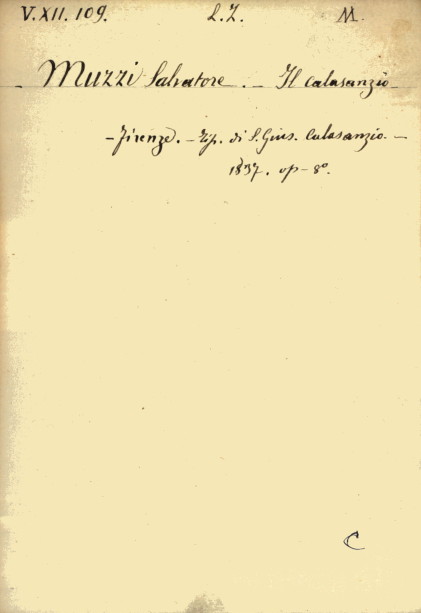 V. XII. 109. L. Z. M.
Muzzi Salvatore. — Il Calasanzio —
— Firenze. — Tip. di S. Gius. Calasanzio. —
1837. op — 8°.
C